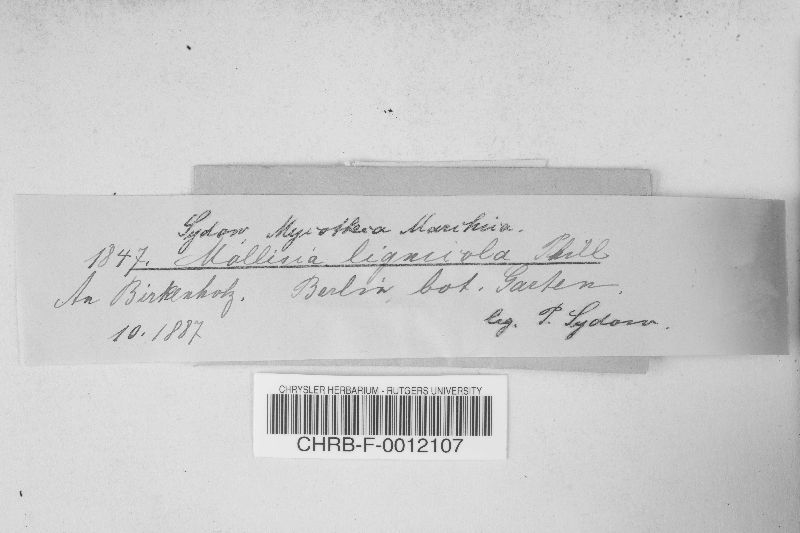 Sydow, Mycotheca Marchica.
1847. Mollisia lignicola Phill
An Birkenholz. Berlin, bot. Garten.
10. 1887
leg. P. Sydow.
CHRYSLER HERBARIUM - RUTGERS UNIVERSITY
CHRB-F-0012107